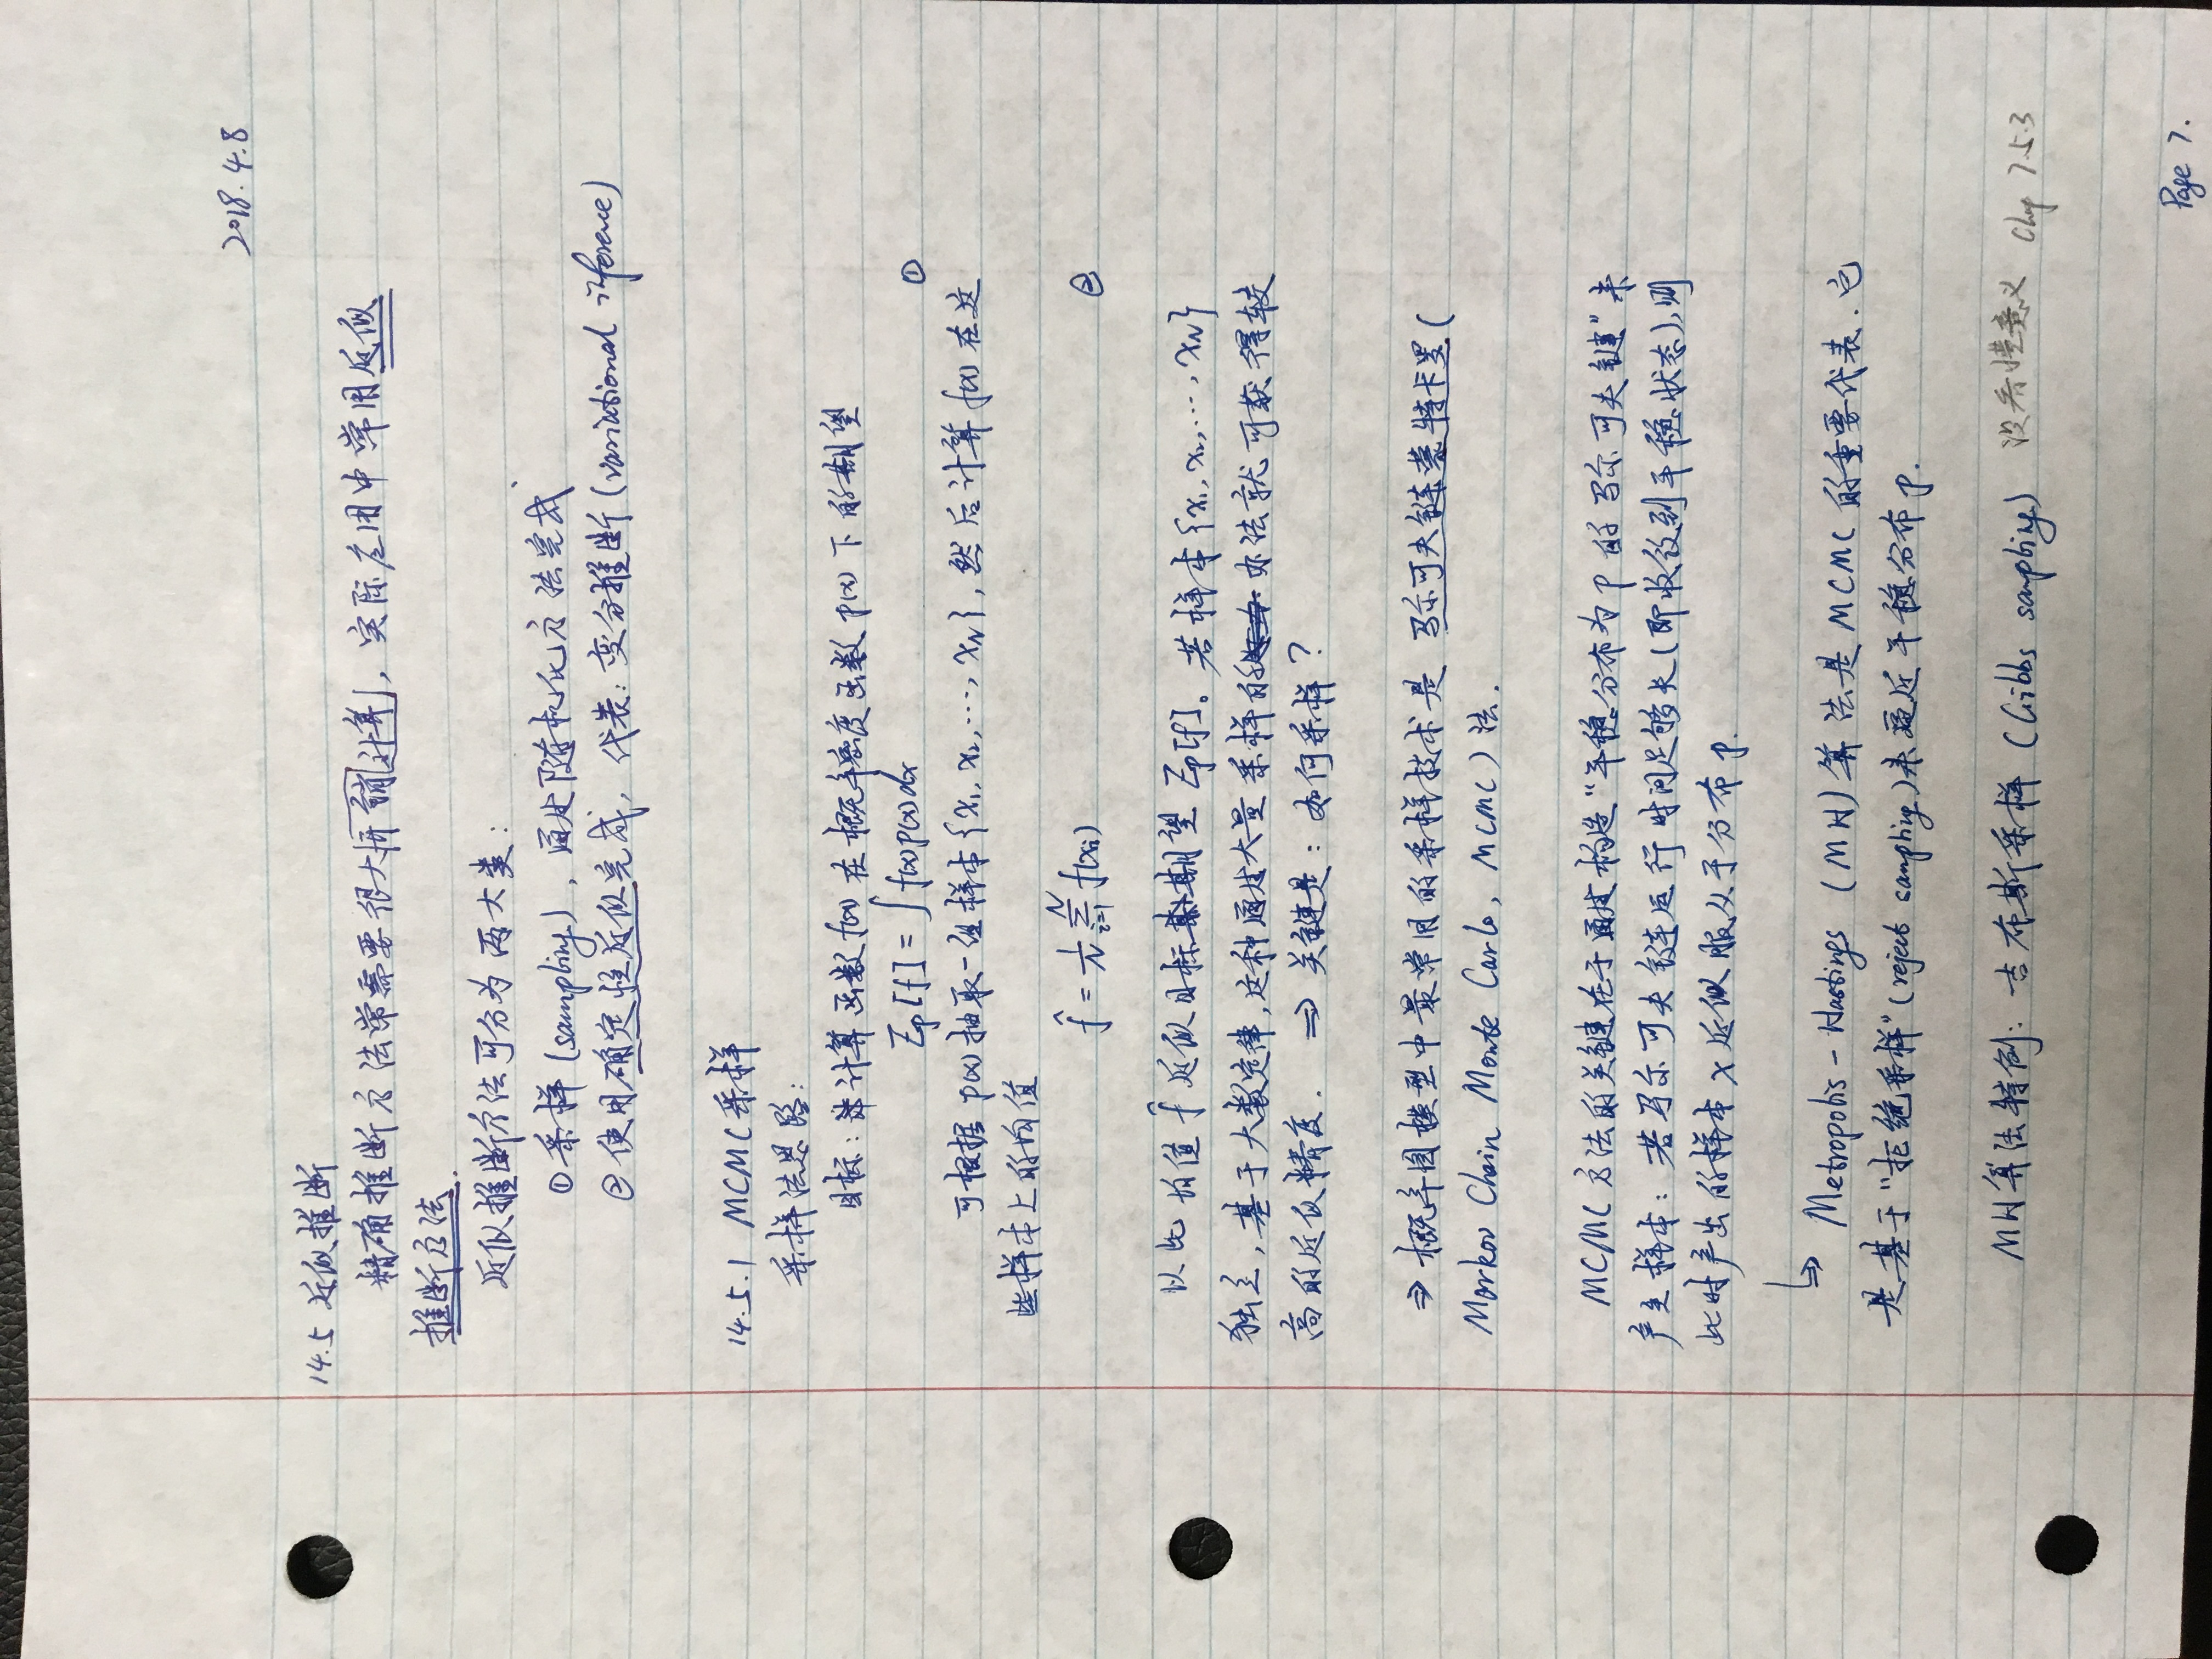 2018.4.8
14.5 近似推断
精确推断方法常需要很大开销计算，实际应用中常用近似
推断方法.
近似推断方法可分为两大类：
① 采样 (sampling)，通过随机化方法完成
② 使用确定性近似完成，代表：变分推断 (variational inference)
14.5.1 MCMC采样
采样法思路：
目标：计算函数 f(x) 在概率密度函数 p(x) 下的期望
Ep[f] = ∫ f(x)p(x)dx ①
可根据 p(x) 抽取一组样本 {x₁, x₂, ..., x_N}，然后计算 f(x) 在这
些样本上的均值
f̂ = 1/N Σ_{i=1}^{N} f(xᵢ) ②
以此均值 f̂ 近似目标期望 Ep[f]。若样本 {x₁, x₂, ..., x_N}
独立，基于大数定律，这种通过大量采样的办法就可获得较
高的近似精度. ⇒ 关键是：如何采样？
⇒ 概率图模型中最常用的采样技术是 马尔可夫链蒙特卡罗(
Markov Chain Monte Carlo, MCMC) 法.
MCMC 方法的关键在于通过构造“平稳分布为 p 的马尔可夫链”来
产生样本：若马尔可夫链运行时间足够长(即收敛到平稳状态)，则
此时产出的样本 x 近似服从于分布 p.
↳ Metropolis-Hastings (MH) 算法是 MCMC 的重要代表. 它
是基于“拒绝采样”(reject sampling)来逼近平稳分布 p.
MH算法特例：吉布斯采样 (Gibbs sampling) 没看懂意义 Chap 7.5.3
Page 7.